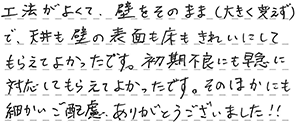 工法がよくて、壁をそのまま(大きく変えず)
で、天井も壁の表面も床もきれいにして
もらえてよかったです。初期不良にも早急に
対応してもらえてよかったです。そのほかにも
細かいご配慮、ありがとうございました!!